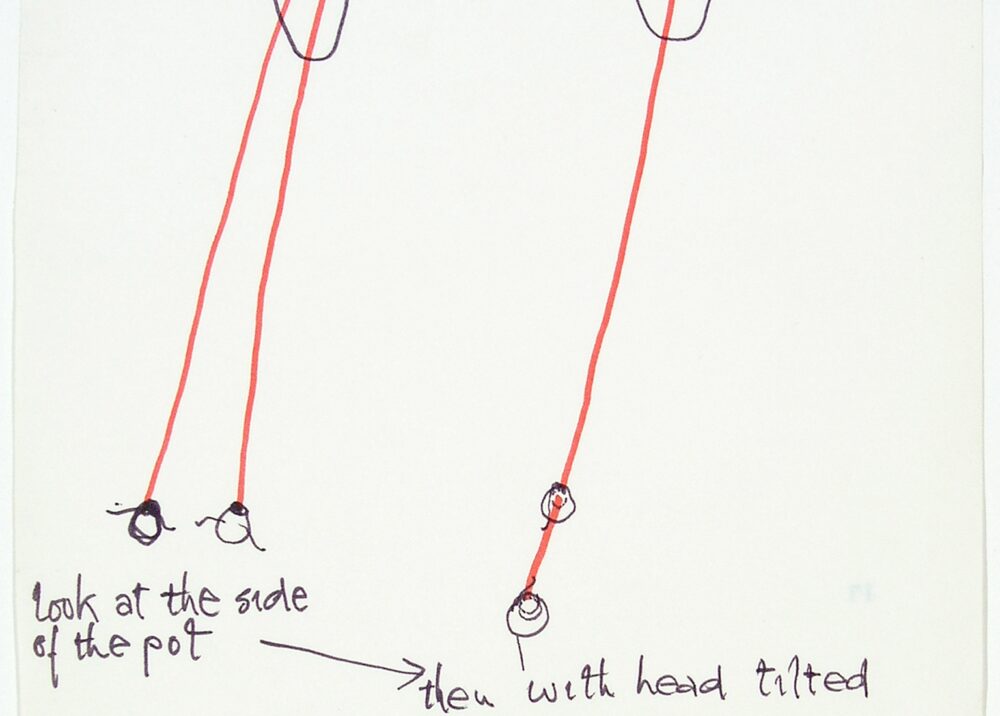 look at the side
of the pot
then with head tilted